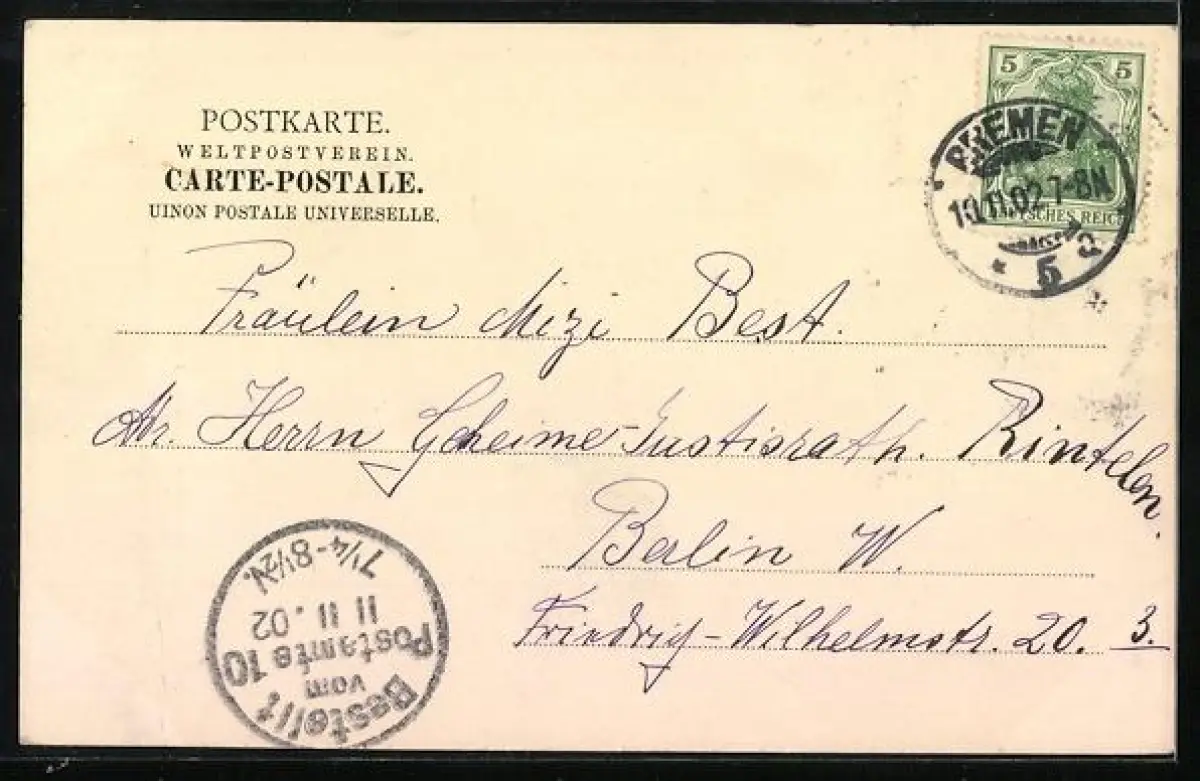 POSTKARTE.
WELTPOSTVEREIN.
CARTE-POSTALE.
UINON POSTALE UNIVERSELLE.
5 5
DEUTSCHES REICH
BREMEN
10.11.02 7-8N
* 5
Fräulein Mizi Best.
Adr. Herrn Geheime-Justisrath. Rintelen.
Berlin W.
Friedrich-Wilhelmstr. 20. 3.
Bestellt
vom
Postamte 10
11 11.02
7¼-8½N.